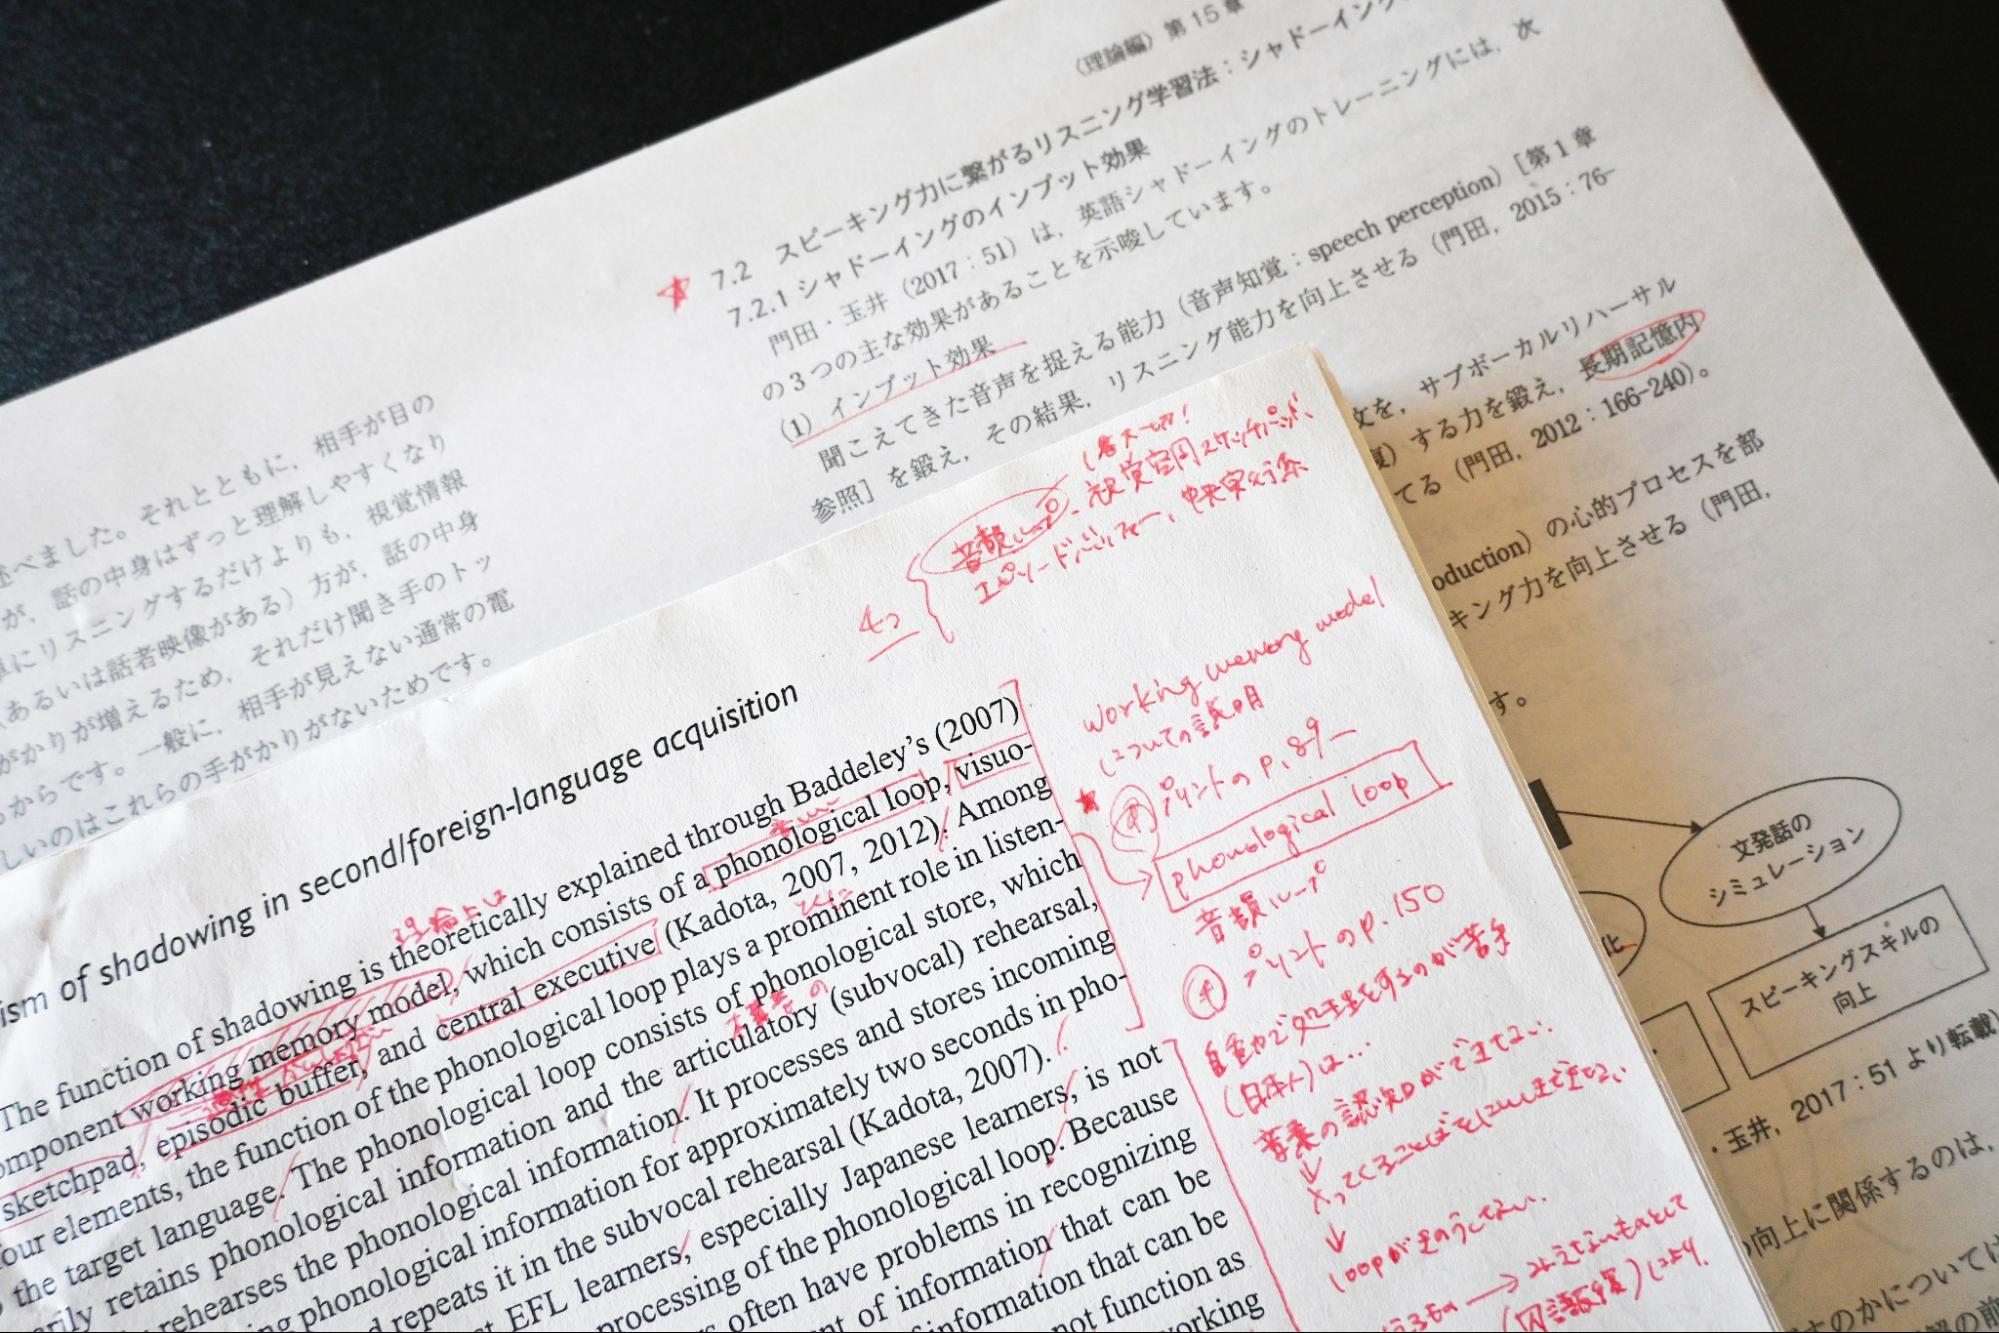 〈理論編〉第15章
7.2 スピーキング力に繋がるリスニング学習法：シャドーイング
7.2.1 シャドーイングのインプット効果
門田・玉井（2017：51）は，英語シャドーイングのトレーニングには，次
の3つの主な効果があることを示唆しています。
(1) インプット効果
聞こえてきた音声を捉える能力（音声知覚：speech perception）［第1章
参照］を鍛え，その結果，リスニング能力を向上させる（門田，2015：76-
文を，サブボーカルリハーサル
する力を鍛え，長期記憶内
てる（門田，2012：166-240）。
oduction）の心的プロセスを部
キング力を向上させる（門田，
す。
文発話の
シミュレーション
化
スピーキングスキルの
向上
・玉井，2017：51より転載）
向上に関係するのは，
べました。それとともに，相手が目の
が，話の中身はずっと理解しやすくなり
にリスニングするだけよりも，視覚情報
（あるいは話者映像がある）方が，話の中身
がかりが増えるため，それだけ聞き手のトッ
からです。一般に，相手が見えない通常の電
しいのはこれらの手がかりがないためです。
ism of shadowing in second/foreign-language acquisition
The function of shadowing is theoretically explained through Baddeley's (2007)
omponent working memory model, which consists of a phonological loop, visuo-
sketchpad, episodic buffer, and central executive (Kadota, 2007, 2012). Among
our elements, the function of the phonological loop plays a prominent role in listen-
the target language. The phonological loop consists of phonological store, which
arily retains phonological information and the articulatory (subvocal) rehearsal,
rehearses the phonological information. It processes and stores incoming
ng phonological information for approximately two seconds in pho-
d repeats it in the subvocal rehearsal (Kadota, 2007).
EFL learners, especially Japanese learners, is not
processing of the phonological loop. Because
often have problems in recognizing
nt of information that can be
information that can be
not function as
working
理論上は
とくに
4つ
音韻ループ、視覚空間スケッチパッド、
エピソードバッファー、中央実行系
working memory model
についての説明
プリントのp.89~
phonological loop
音韻ループ
プリントのp.150
自動で処理をするのが苦手
(日本人)は…
音素の認識ができてない
loopがきのうしない.